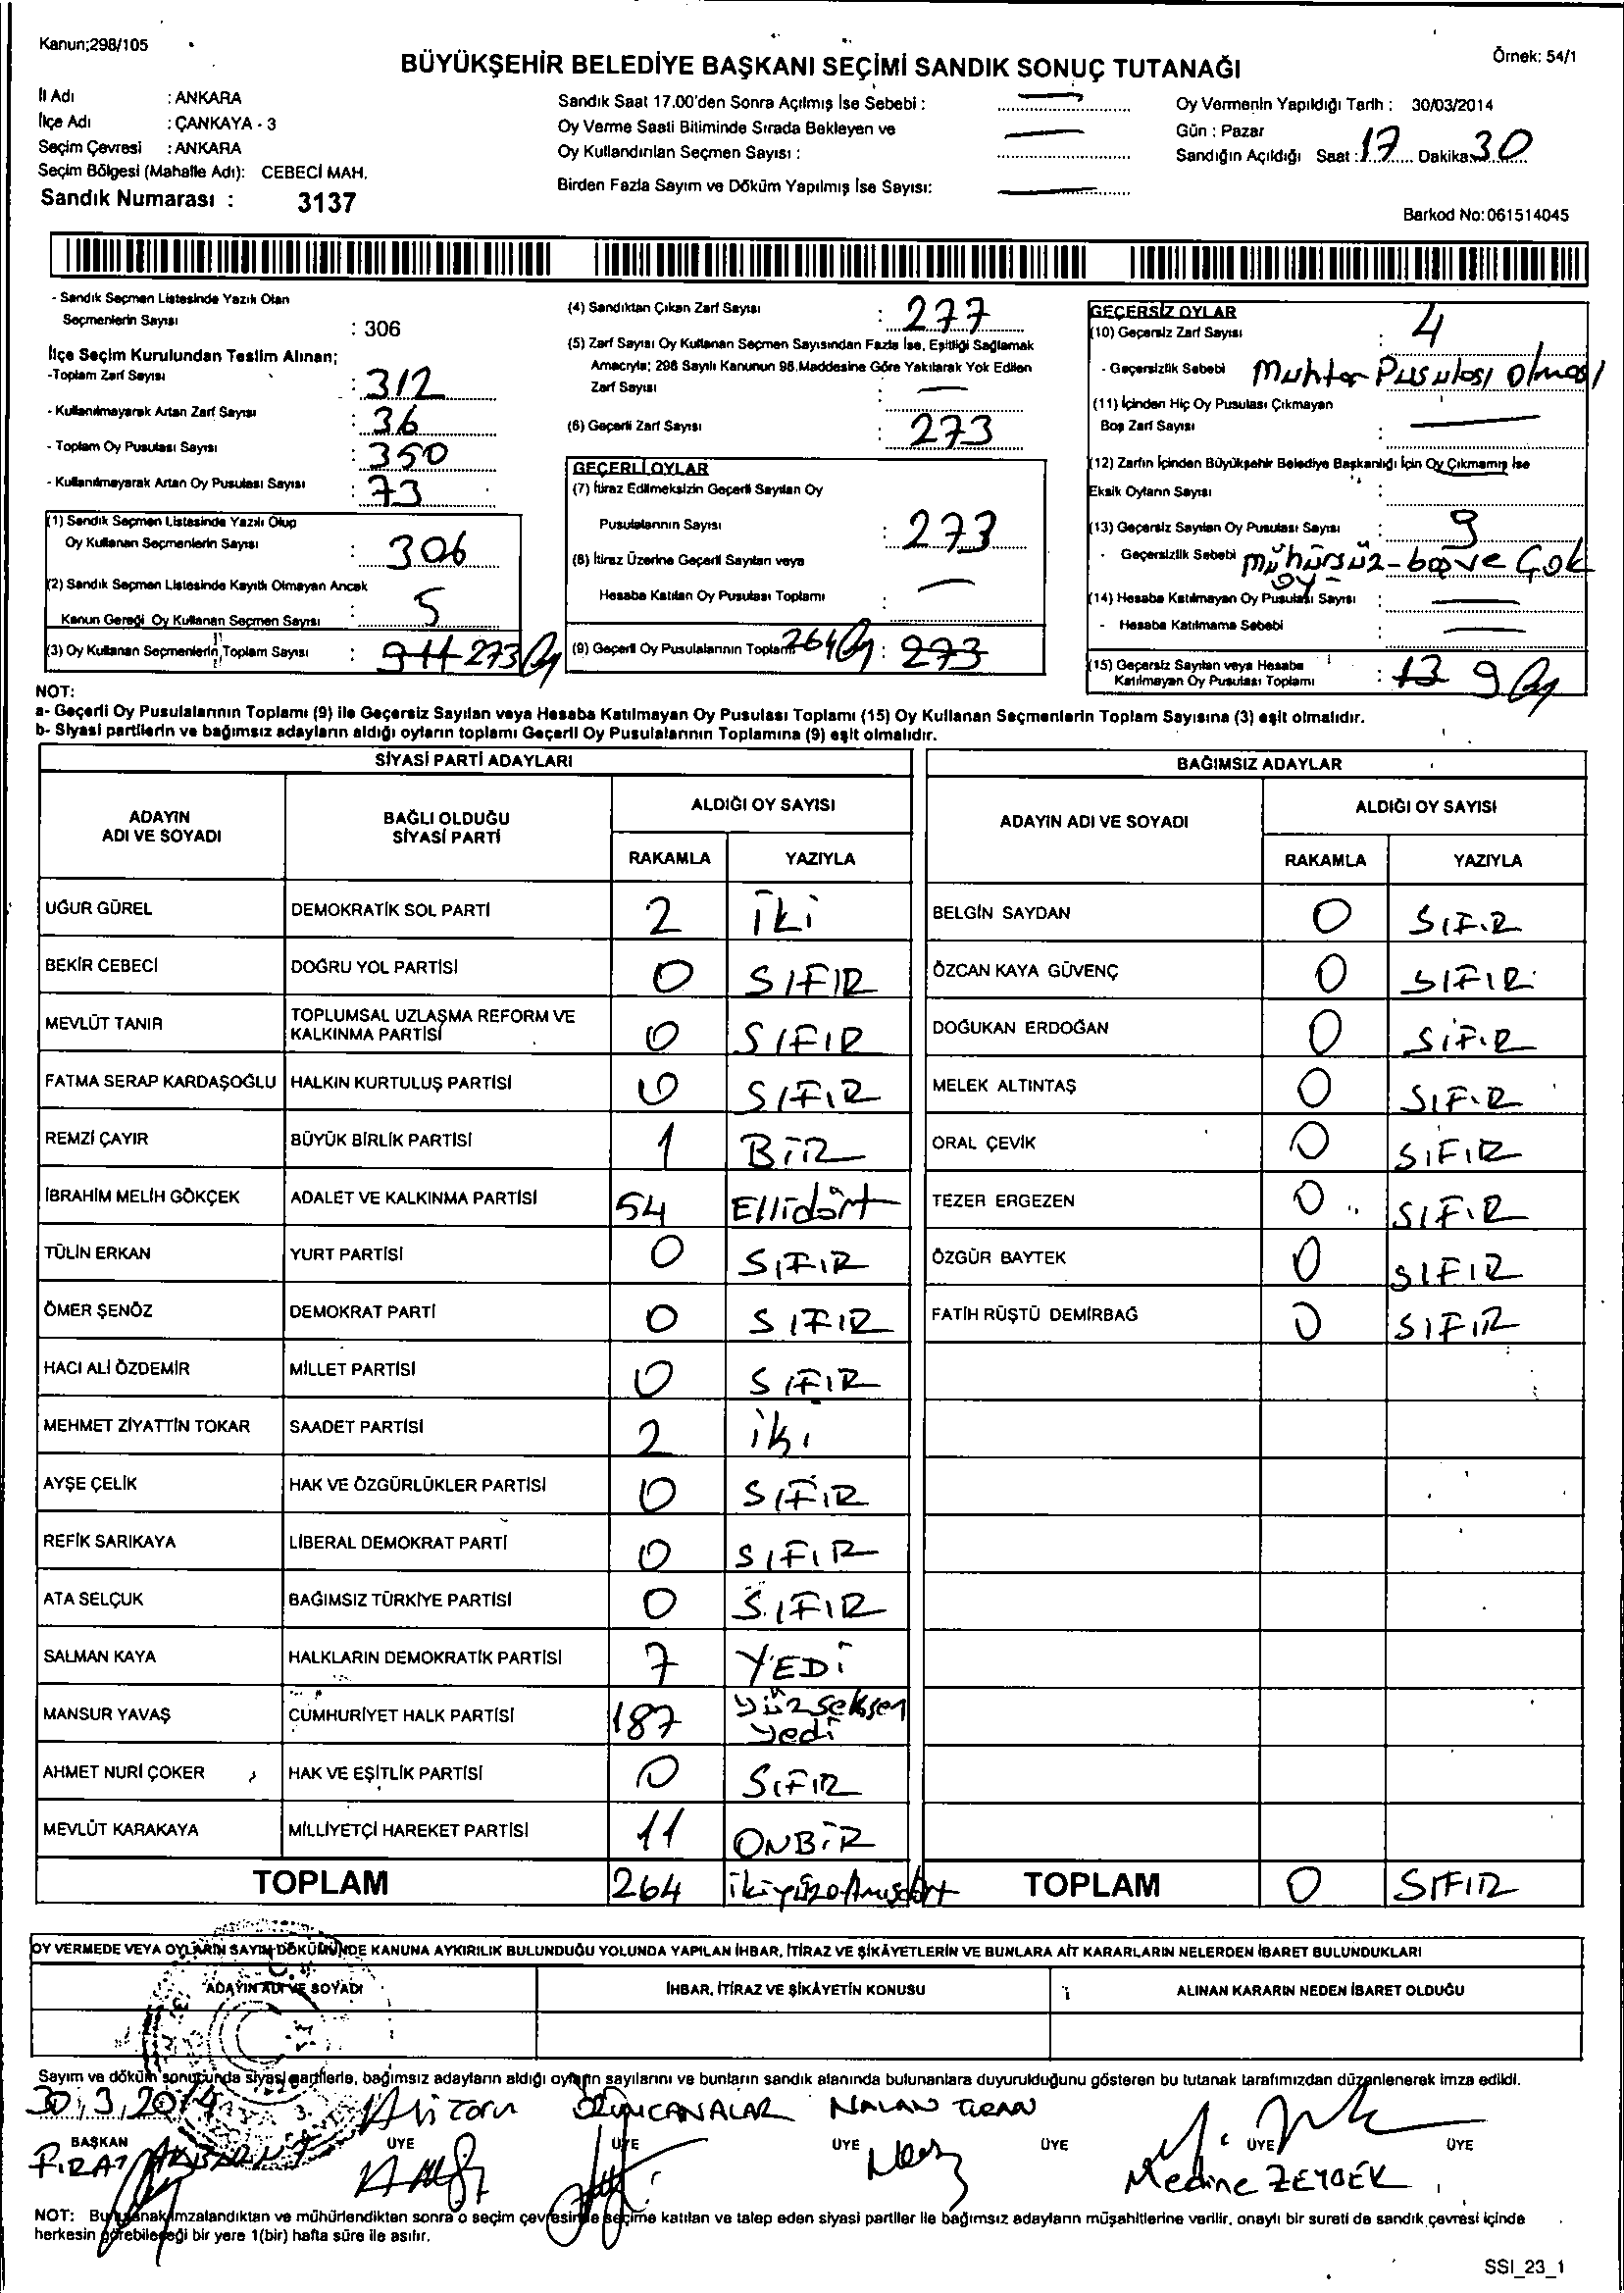 Kanun;298/105
Örnek: 54/1
BÜYÜKŞEHİR BELEDİYE BAŞKANI SEÇİMİ SANDIK SONUÇ TUTANAĞI
İl Adı : ANKARA
İlçe Adı : ÇANKAYA - 3
Seçim Çevresi : ANKARA
Seçim Bölgesi (Mahalle Adı): CEBECİ MAH.
Sandık Numarası : 3137
Sandık Saat 17.00'den Sonra Açılmış İse Sebebi :
Oy Verme Saati Bitiminde Sırada Bekleyen ve
Oy Kullandırılan Seçmen Sayısı :
Birden Fazla Sayım ve Döküm Yapılmış İse Sayısı:
Oy Vermenin Yapıldığı Tarih : 30/03/2014
Gün : Pazar
Sandığın Açıldığı Saat : 17 Dakika: 30
Barkod No: 061514045
- Sandık Seçmen Listesinde Yazılı Olan
Seçmenlerin Sayısı : 306
İlçe Seçim Kurulundan Teslim Alınan;
-Toplam Zarf Sayısı : 312
- Kullanılmayarak Artan Zarf Sayısı : 36
- Toplam Oy Pusulası Sayısı : 350
- Kullanılmayarak Artan Oy Pusulası Sayısı : 73
(1) Sandık Seçmen Listesinde Yazılı Olup
Oy Kullanan Seçmenlerin Sayısı : 306
(2) Sandık Seçmen Listesinde Kayıtlı Olmayan Ancak
Kanun Gereği Oy Kullanan Seçmen Sayısı : 5
(3) Oy Kullanan Seçmenlerin Toplam Sayısı : 273
(4) Sandıktan Çıkan Zarf Sayısı : 277
(5) Zarf Sayısı Oy Kullanan Seçmen Sayısından Fazla İse, Eşitliği Sağlamak
Amacıyla; 298 Sayılı Kanunun 98.Maddesine Göre Yakılarak Yok Edilen
Zarf Sayısı :
(6) Geçerli Zarf Sayısı : 273
GEÇERLİ OYLAR
(7) İtiraz Edilmeksizin Geçerli Sayılan Oy
Pusulalarının Sayısı : 273
(8) İtiraz Üzerine Geçerli Sayılan veya
Hesaba Katılan Oy Pusulası Toplamı :
(9) Geçerli Oy Pusulalarının Toplamı 264 : 273
GEÇERSİZ OYLAR
(10) Geçersiz Zarf Sayısı : 4
- Geçersizlik Sebebi Muhtar Pusulası olması
(11) İçinden Hiç Oy Pusulası Çıkmayan
Boş Zarf Sayısı :
(12) Zarfın İçinden Büyükşehir Belediye Başkanlığı İçin Oy Çıkmamış İse
Eksik Oyların Sayısı :
(13) Geçersiz Sayılan Oy Pusulası Sayısı : 9
- Geçersizlik Sebebi mühürsüz-boş ve Çok
oy
(14) Hesaba Katılmayan Oy Pusulası Sayısı :
- Hesaba Katılmama Sebebi :
(15) Geçersiz Sayılan veya Hesaba
Katılmayan Oy Pusulası Toplamı : 13 9
NOT:
a- Geçerli Oy Pusulalarının Toplamı (9) ile Geçersiz Sayılan veya Hesaba Katılmayan Oy Pusulası Toplamı (15) Oy Kullanan Seçmenlerin Toplam Sayısına (3) eşit olmalıdır.
b- Siyasi partilerin ve bağımsız adayların aldığı oyların toplamı Geçerli Oy Pusulalarının Toplamına (9) eşit olmalıdır.
SİYASİ PARTİ ADAYLARI
ADAYIN
ADI VE SOYADI
BAĞLI OLDUĞU
SİYASİ PARTİ
ALDIĞI OY SAYISI
RAKAMLA YAZIYLA
UĞUR GÜREL DEMOKRATİK SOL PARTİ 2 İki
BEKİR CEBECİ DOĞRU YOL PARTİSİ 0 SIFIR
MEVLÜT TANIR TOPLUMSAL UZLAŞMA REFORM VE
KALKINMA PARTİSİ 0 SIFIR
FATMA SERAP KARDAŞOĞLU HALKIN KURTULUŞ PARTİSİ 0 SIFIR
REMZİ ÇAYIR BÜYÜK BİRLİK PARTİSİ 1 BİR
İBRAHİM MELİH GÖKÇEK ADALET VE KALKINMA PARTİSİ 54 Ellidört
TÜLİN ERKAN YURT PARTİSİ 0 SIFIR
ÖMER ŞENÖZ DEMOKRAT PARTİ 0 SIFIR
HACI ALİ ÖZDEMİR MİLLET PARTİSİ 0 SIFIR
MEHMET ZİYATTİN TOKAR SAADET PARTİSİ 2 iki
AYŞE ÇELİK HAK VE ÖZGÜRLÜKLER PARTİSİ 0 SIFIR
REFİK SARIKAYA LİBERAL DEMOKRAT PARTİ 0 SIFIR
ATA SELÇUK BAĞIMSIZ TÜRKİYE PARTİSİ 0 SIFIR
SALMAN KAYA HALKLARIN DEMOKRATİK PARTİSİ 7 YEDİ
MANSUR YAVAŞ CUMHURİYET HALK PARTİSİ 187 yüzseksen
yedi
AHMET NURİ ÇOKER HAK VE EŞİTLİK PARTİSİ 0 SIFIR
MEVLÜT KARAKAYA MİLLİYETÇİ HAREKET PARTİSİ 11 ONBİR
TOPLAM 264 ikiyüzaltmışdört
BAĞIMSIZ ADAYLAR
ADAYIN ADI VE SOYADI
ALDIĞI OY SAYISI
RAKAMLA YAZIYLA
BELGİN SAYDAN 0 SIFIR
ÖZCAN KAYA GÜVENÇ 0 SIFIR
DOĞUKAN ERDOĞAN 0 SIFIR
MELEK ALTINTAŞ 0 SIFIR
ORAL ÇEVİK 0 SIFIR
TEZER ERGEZEN 0 SIFIR
ÖZGÜR BAYTEK 0 SIFIR
FATİH RÜŞTÜ DEMİRBAĞ 0 SIFIR
TOPLAM 0 SIFIR
OY VERMEDE VEYA OYLARIN SAYIM DÖKÜMÜNDE KANUNA AYKIRILIK BULUNDUĞU YOLUNDA YAPILAN İHBAR, İTİRAZ VE ŞİKÂYETLERİN VE BUNLARA AİT KARARLARIN NELERDEN İBARET BULUNDUKLARI
ADAYIN ADI VE SOYADI
İHBAR, İTİRAZ VE ŞİKÂYETİN KONUSU
ALINAN KARARIN NEDEN İBARET OLDUĞU
Sayım ve döküm sonucunda siyasi partilerle, bağımsız adayların aldığı oyların sayılarını ve bunların sandık alanında bulunanlara duyurulduğunu gösteren bu tutanak tarafımızdan düzenlenerek imza edildi.
30.3.2014
NALAN TURAN
BAŞKAN ÜYE ÜYE ÜYE ÜYE ÜYE ÜYE
FIRAT
Medine ZEYBEK
NOT: Bu tutanak imzalandıktan ve mühürlendikten sonra o seçim çevresinde seçime katılan ve talep eden siyasi partiler ile bağımsız adayların müşahitlerine verilir, onaylı bir sureti de sandık çevresi içinde
herkesin görebileceği bir yere 1(bir) hafta süre ile asılır.
SSI_23_1